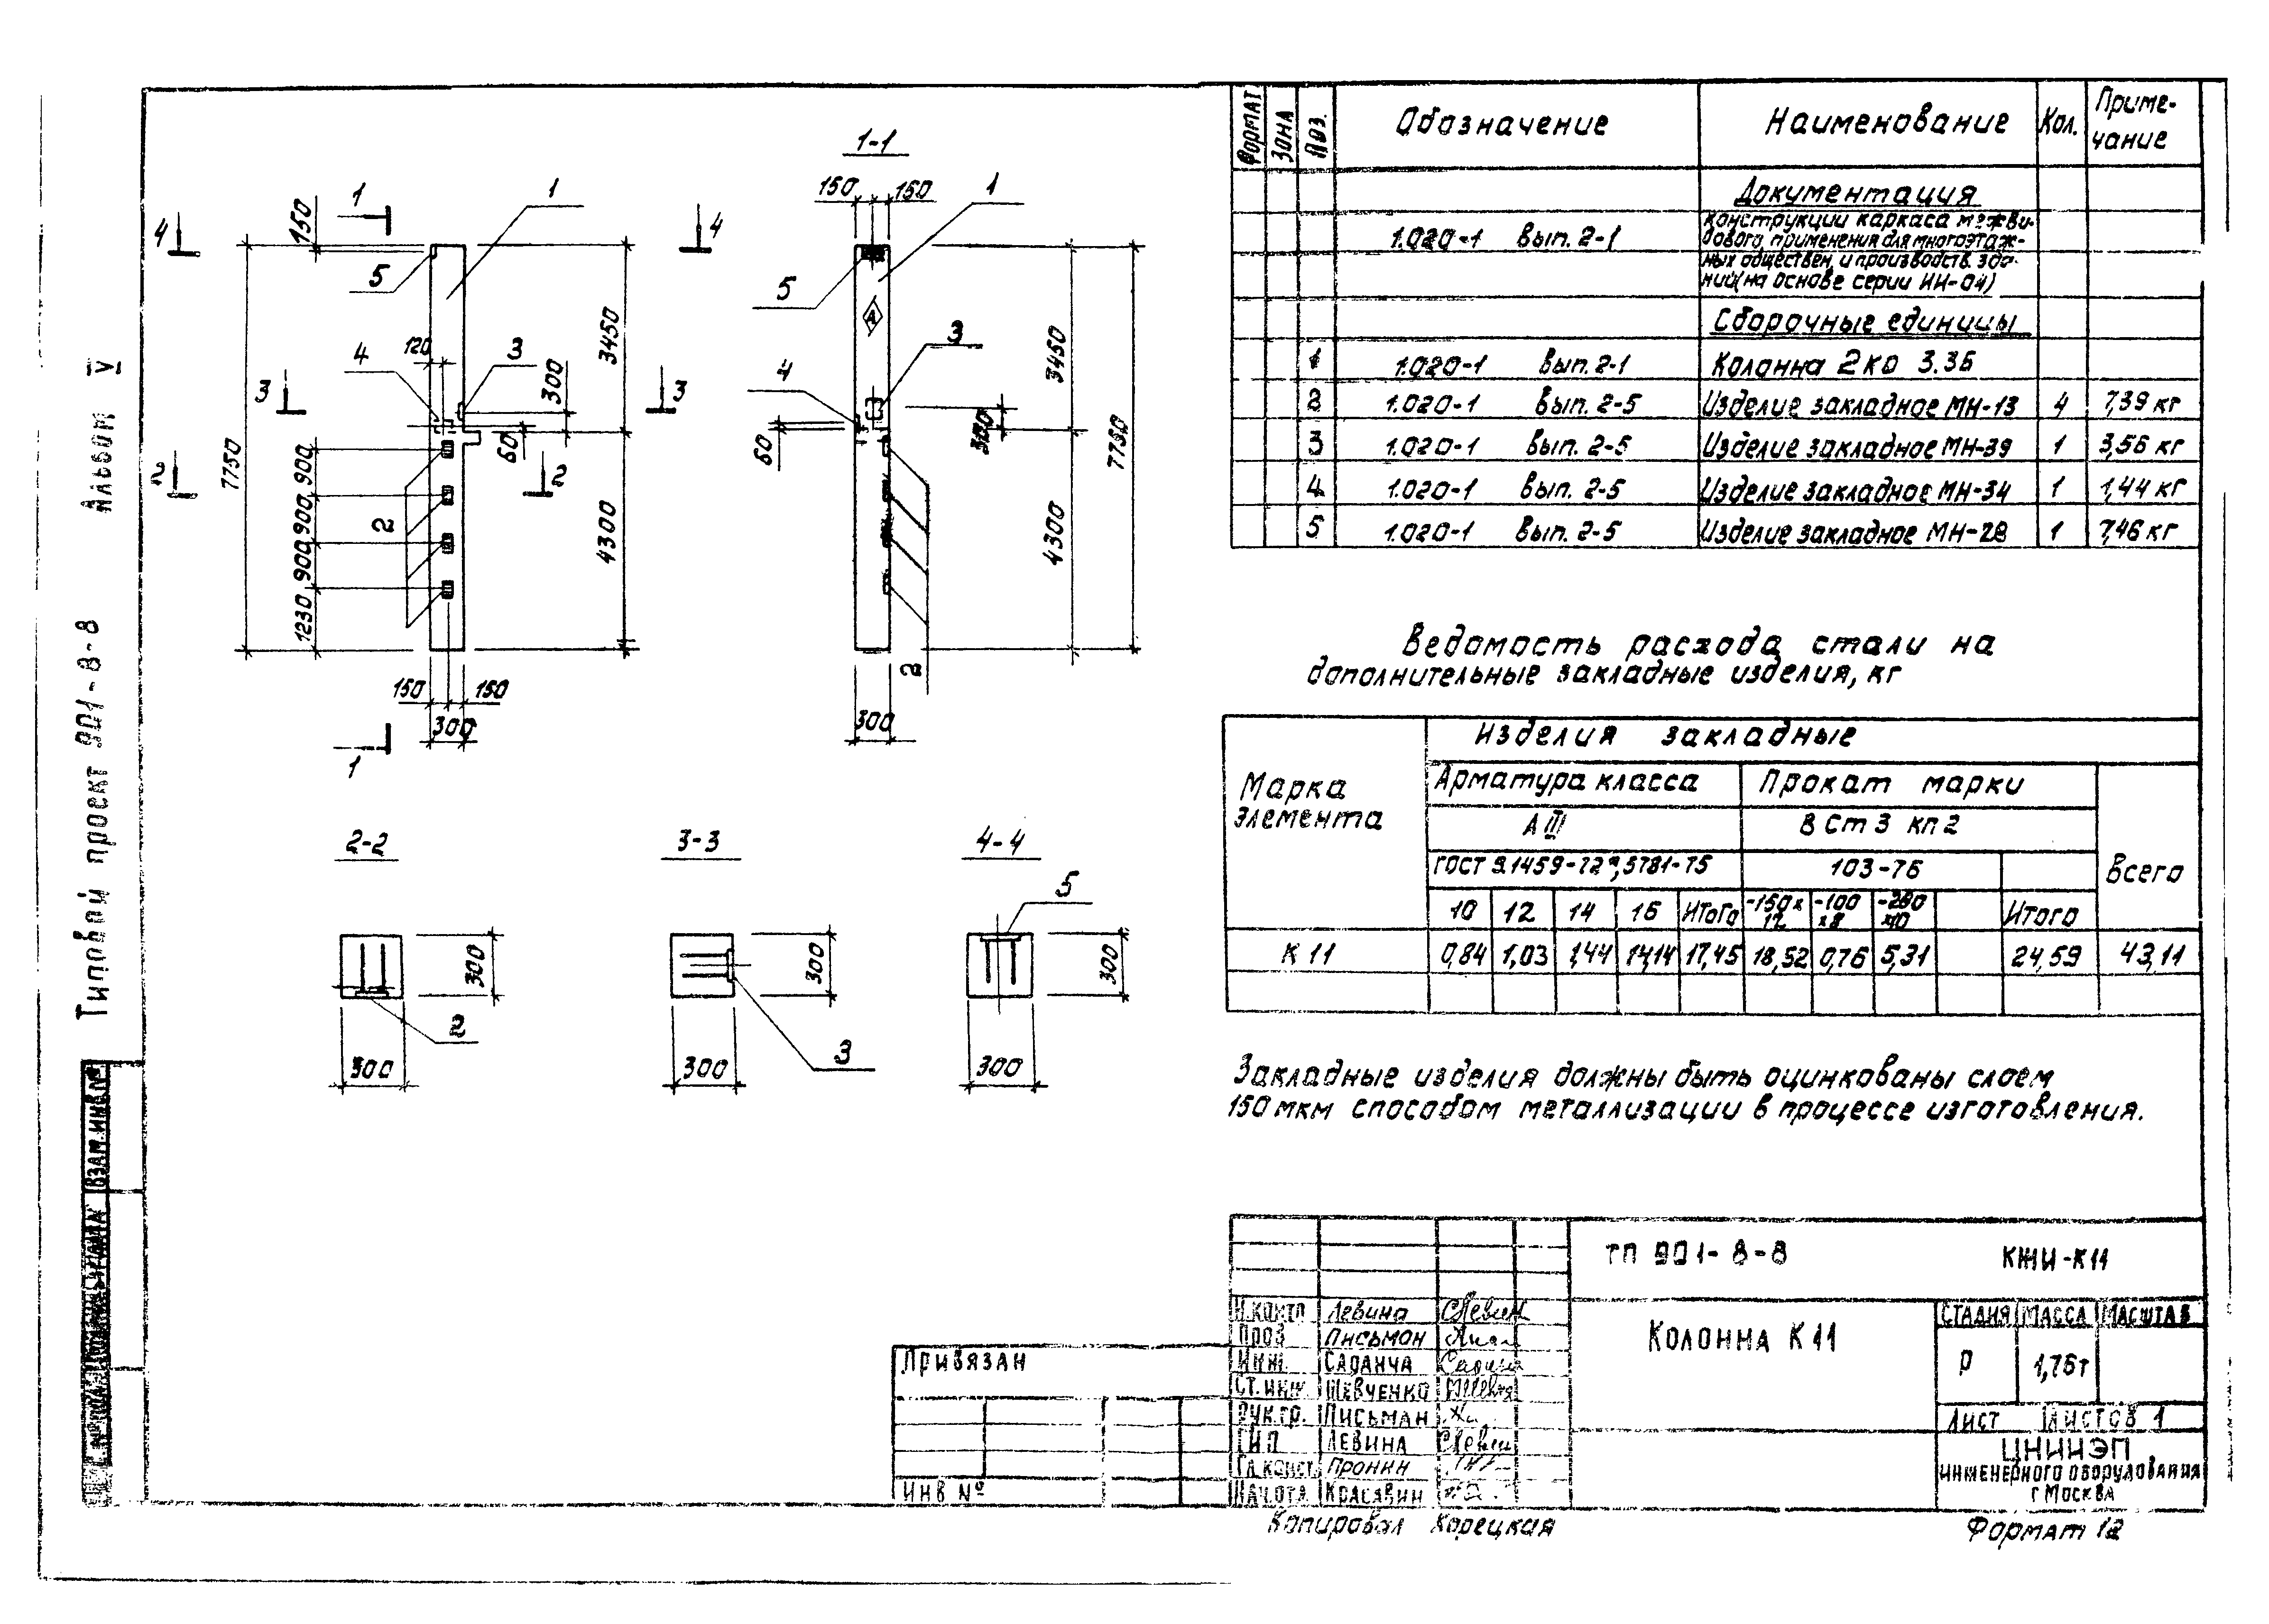 Типовой проект 901-8-8 Альбом V
ВЗАМ.ИНВ.№
1-1
1
150
4
5
1
120
4
3
3
300
3450
60
2
2
2
7750
900
900
900
1230
4300
150 150
300
1
150 150
1
4
5
А
3
4
3
60
300
3450
7750
4300
2
300
2-2
300
2
300
3-3
300
3
300
4-4
5
300
300
ФОРМАТ ЗОНА Поз. Обозначение Наименование Кол. Приме-
чание
Документация
1.020-1 вып. 2-1 Конструкции каркаса межви-
дового применения для многоэтаж-
ных обществен. и производств. зда-
ний (на основе серии ИИ-04)
Сборочные единицы
1 1.020-1 вып. 2-1 Колонна 2КО 3.36
2 1.020-1 вып. 2-5 Изделие закладное МН-13 4 7,39 кг
3 1.020-1 вып. 2-5 Изделие закладное МН-39 1 3,56 кг
4 1.020-1 вып. 2-5 Изделие закладное МН-34 1 1,44 кг
5 1.020-1 вып. 2-5 Изделие закладное МН-28 1 7,46 кг
Ведомость расхода стали на
дополнительные закладные изделия, кг
Марка
элемента
Изделия закладные
Арматура класса Прокат марки
А III В Ст 3 кп 2
ГОСТ 5.1459-72*, 5781-75 103-76 Всего
10 12 14 16 Итого -150х
12 -100
х8 -280
х10 Итого
К 11 0,84 1,03 1,44 14,14 17,45 18,52 0,76 5,31 24,59 43,11
Закладные изделия должны быть оцинкованы слоем
150 мкм способом металлизации в процессе изготовления.
ТП 901-8-8 КЖИ-К11
Н.контр. Левина
Пров. Письман
Инж. Саданча
Ст. инж. Шевченко
Рук.гр. Письман
ГИП Левина
Гл.конст. Пронин
Нач.отд. Красавин
Колонна К 11
СТАДИЯ МАССА МАСШТАБ
Р 1,76т
Лист Листов 1
ЦНИИЭП
инженерного оборудования
г Москва
Привязан
Инв №
Копировал Корецкая
Формат 12